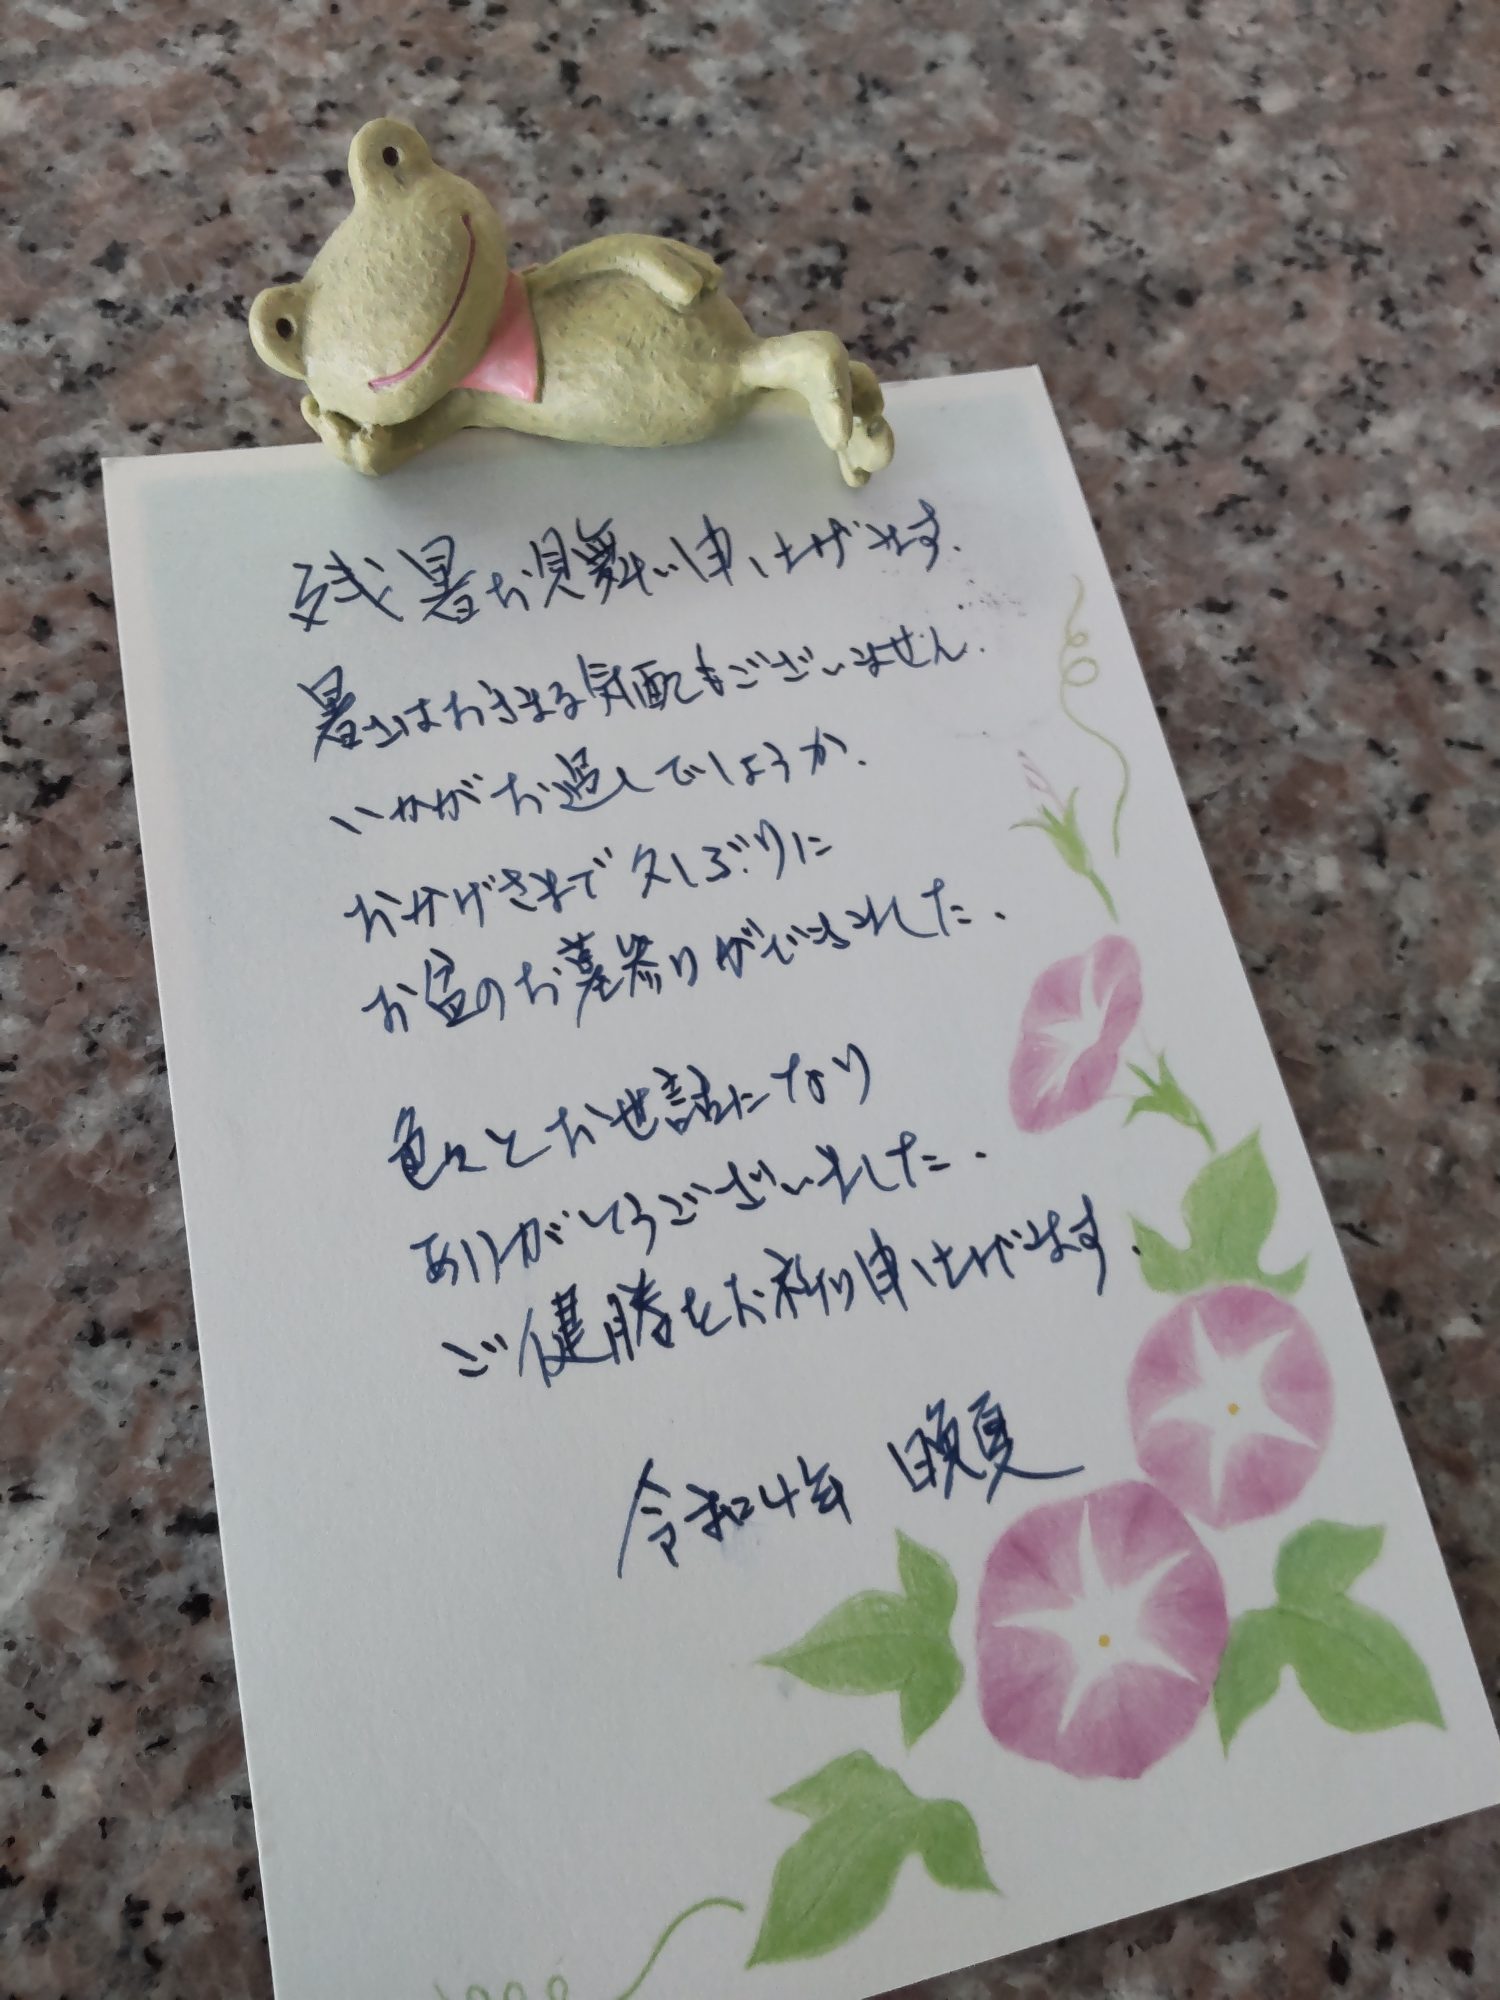 残暑お見舞い申し上げます.
暑さはおさまる気配もございません.
いかがお過しでしょうか.
おかげさまで久しぶりに
お盆のお墓参りができました.
色々とお世話になり
ありがとうございました.
ご健勝をお祈り申し上げます.
令和4年 晩夏